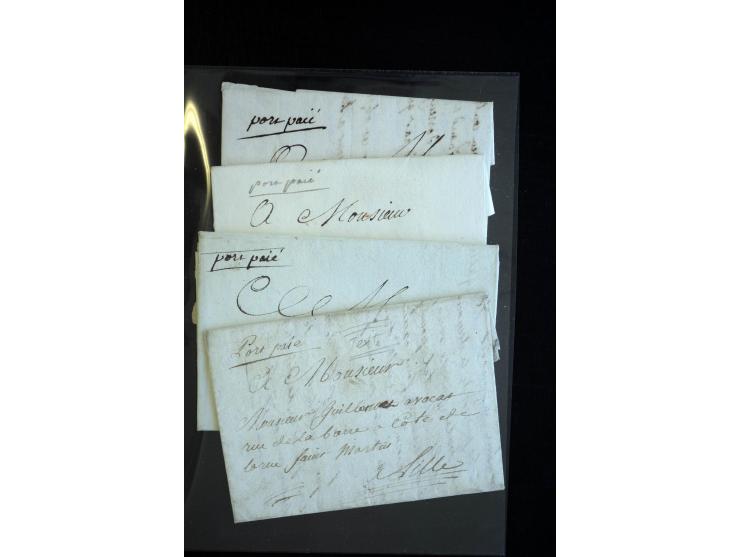 port paié
port paié
A Monsieur
port paié
Port paié
texte
A Monsieur
Monsieur avocat
rue de la barre a côté de
la rue saint Martin
a Lille